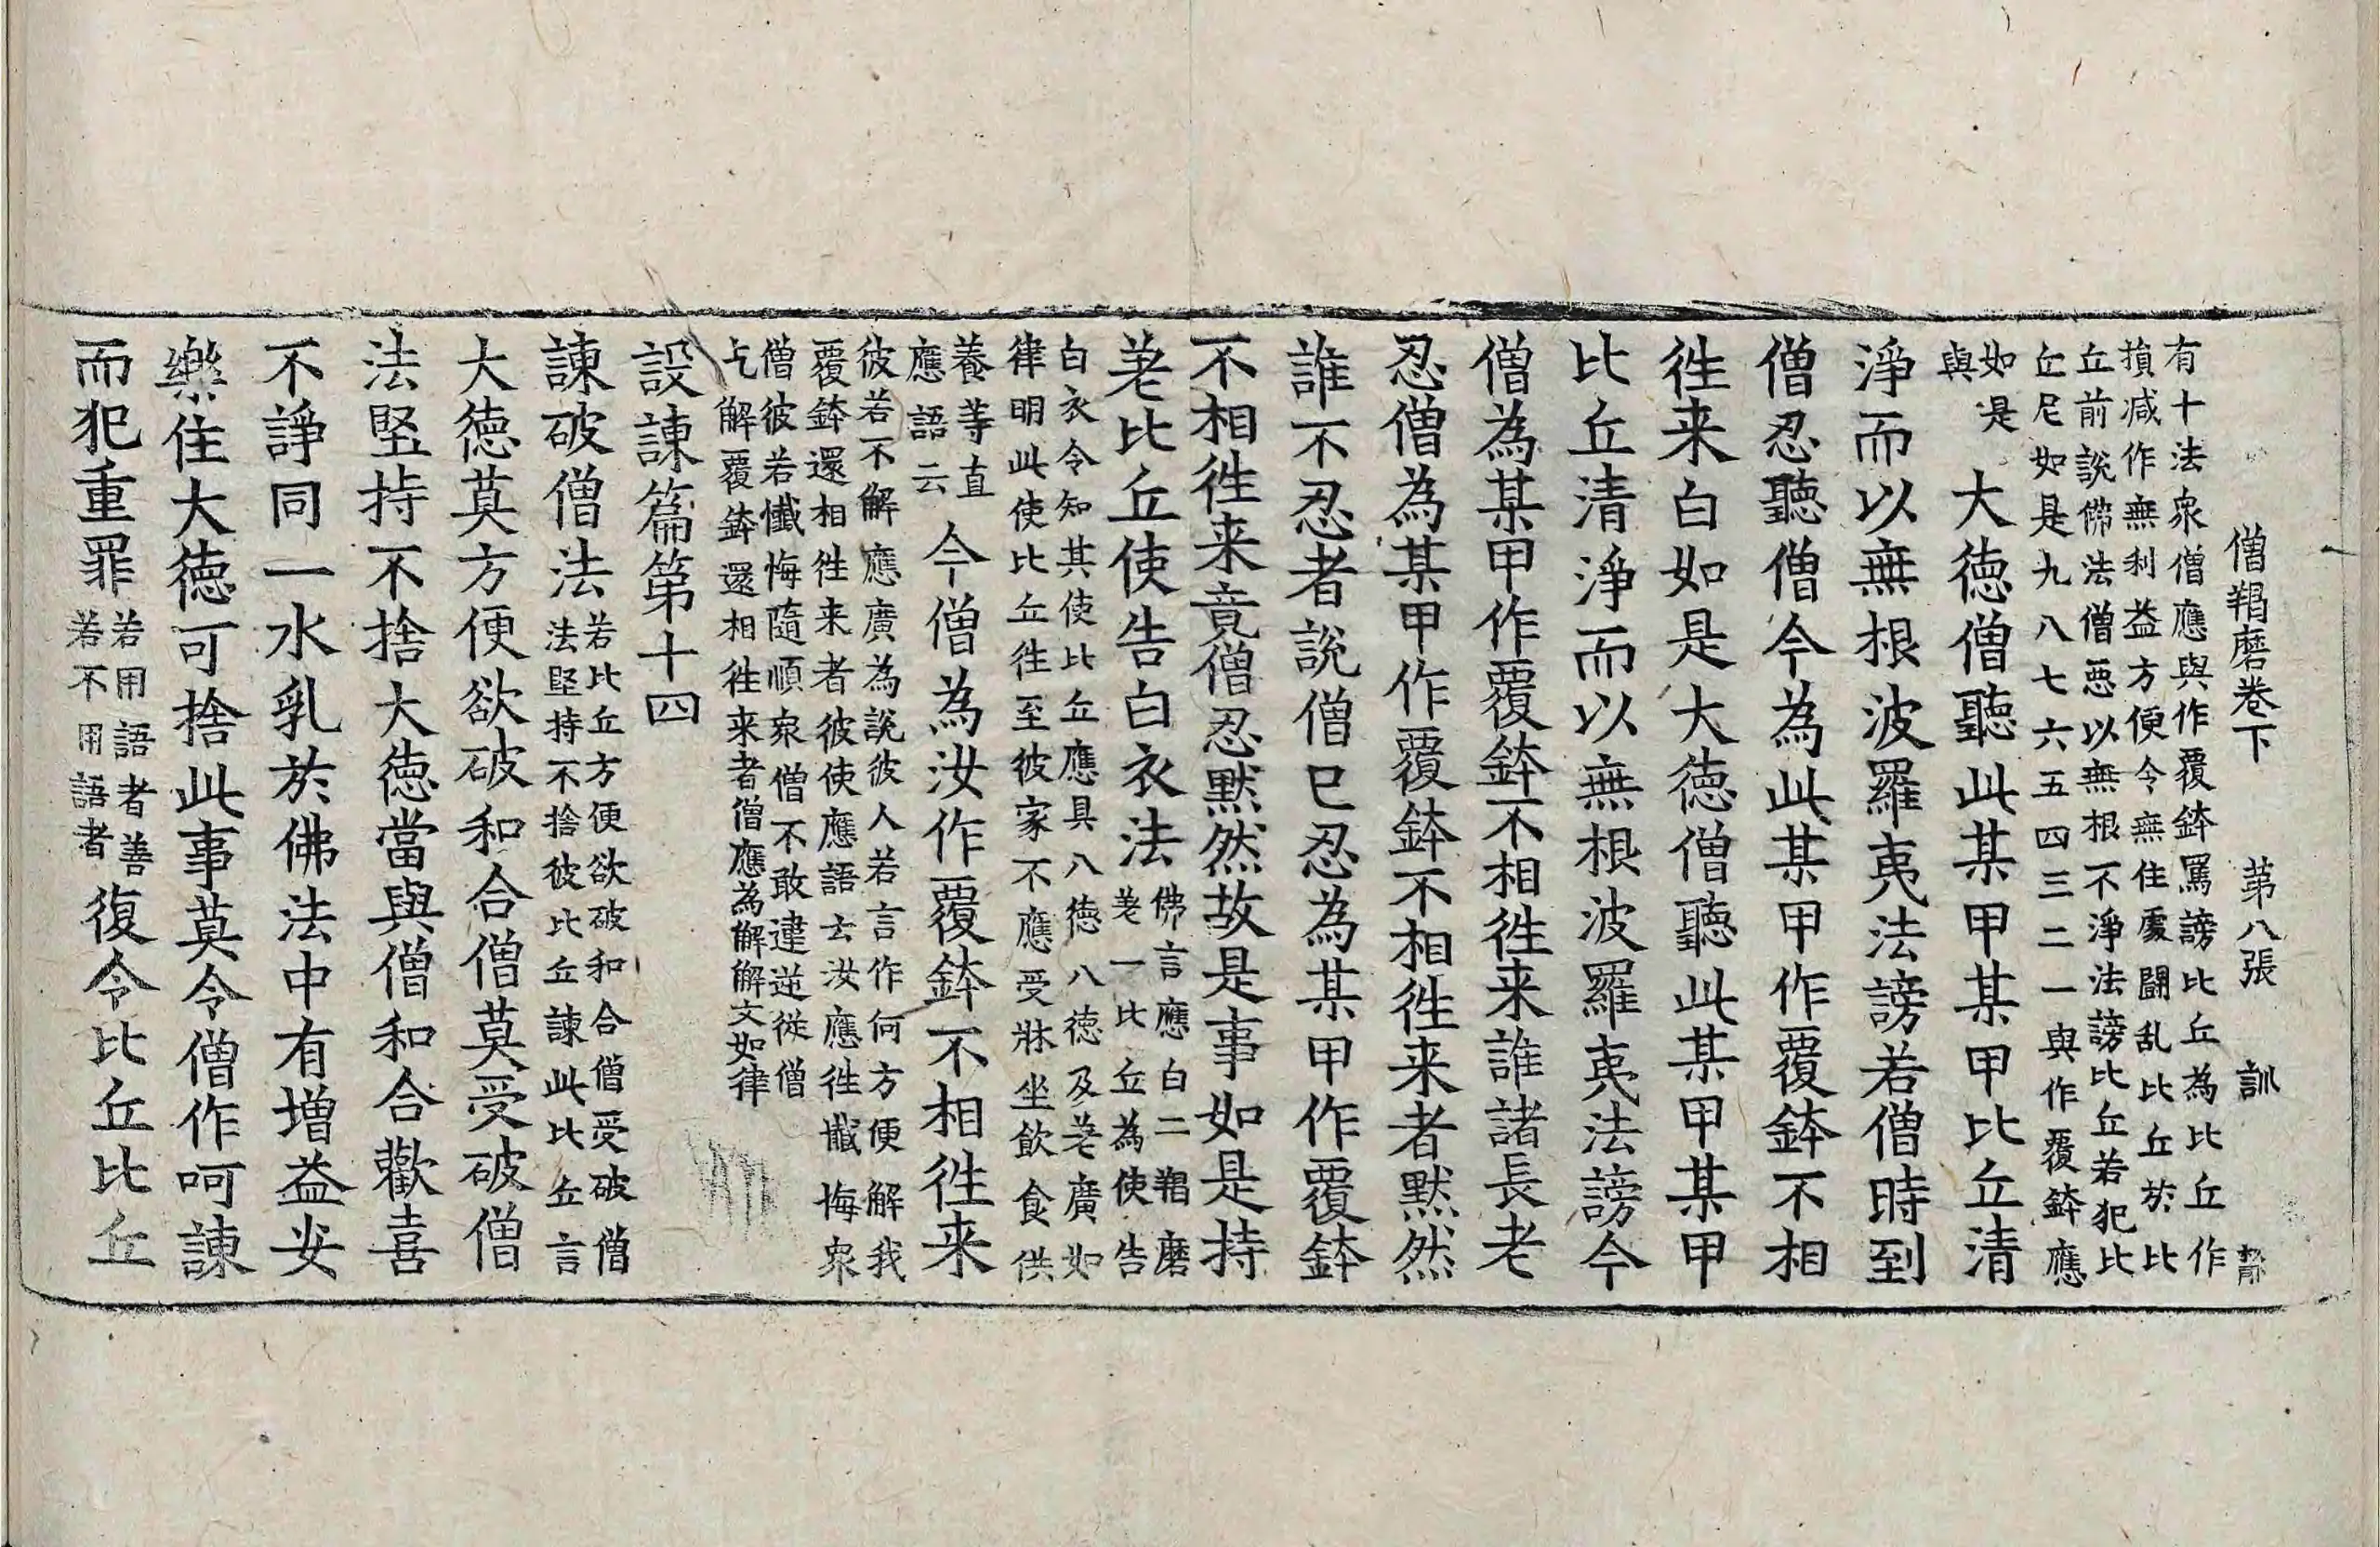 僧羯磨卷下　第八張　訓
有十法衆僧應與作覆鉢罵謗比丘為比丘作
損减作無利益方便令無住處鬪乱比丘於比
丘前說佛法僧惡以無根不淨法謗比丘若犯比
丘尼如是九八七六五四三二一與作覆鉢應
如是
與
大德僧聽此某甲某甲比丘清
淨而以無根波羅夷法謗若僧時到
僧忍聽僧今為此某甲作覆鉢不相
徃来白如是大德僧聽此某甲某甲
比丘清淨而以無根波羅夷法謗今
僧為某甲作覆鉢不相徃来誰諸長老
忍僧為某甲作覆鉢不相徃来者默然
誰不忍者說僧已忍為某甲作覆鉢
不相徃来竟僧忍默然故是事如是持
差比丘使告白衣法
佛言應白二羯磨
差一比丘為使告
白衣令知其使比丘應具八德八德及差廣如
律明此使比丘徃至彼家不應受牀坐飲食供
養等直
應語云
今僧為汝作覆鉢不相徃来
彼若不解應廣為說彼人若言作何方便解我
覆鉢還相徃来者彼使應語言汝應徃懺悔衆
僧彼若懺悔隨順衆僧不敢違逆從僧
乞解覆鉢還相徃来者僧應為解解文如律
設諫篇第十四
諫破僧法
若比丘方便欲破和合僧受破僧
法堅持不捨彼比丘諫此比丘言
大德莫方便欲破和合僧莫受破僧
法堅持不捨大德當與僧和合歡喜
不諍同一水乳於佛法中有增益安
樂住大德可捨此事莫令僧作呵諫
而犯重罪
若用語者善
若不用語者
復令比丘比丘